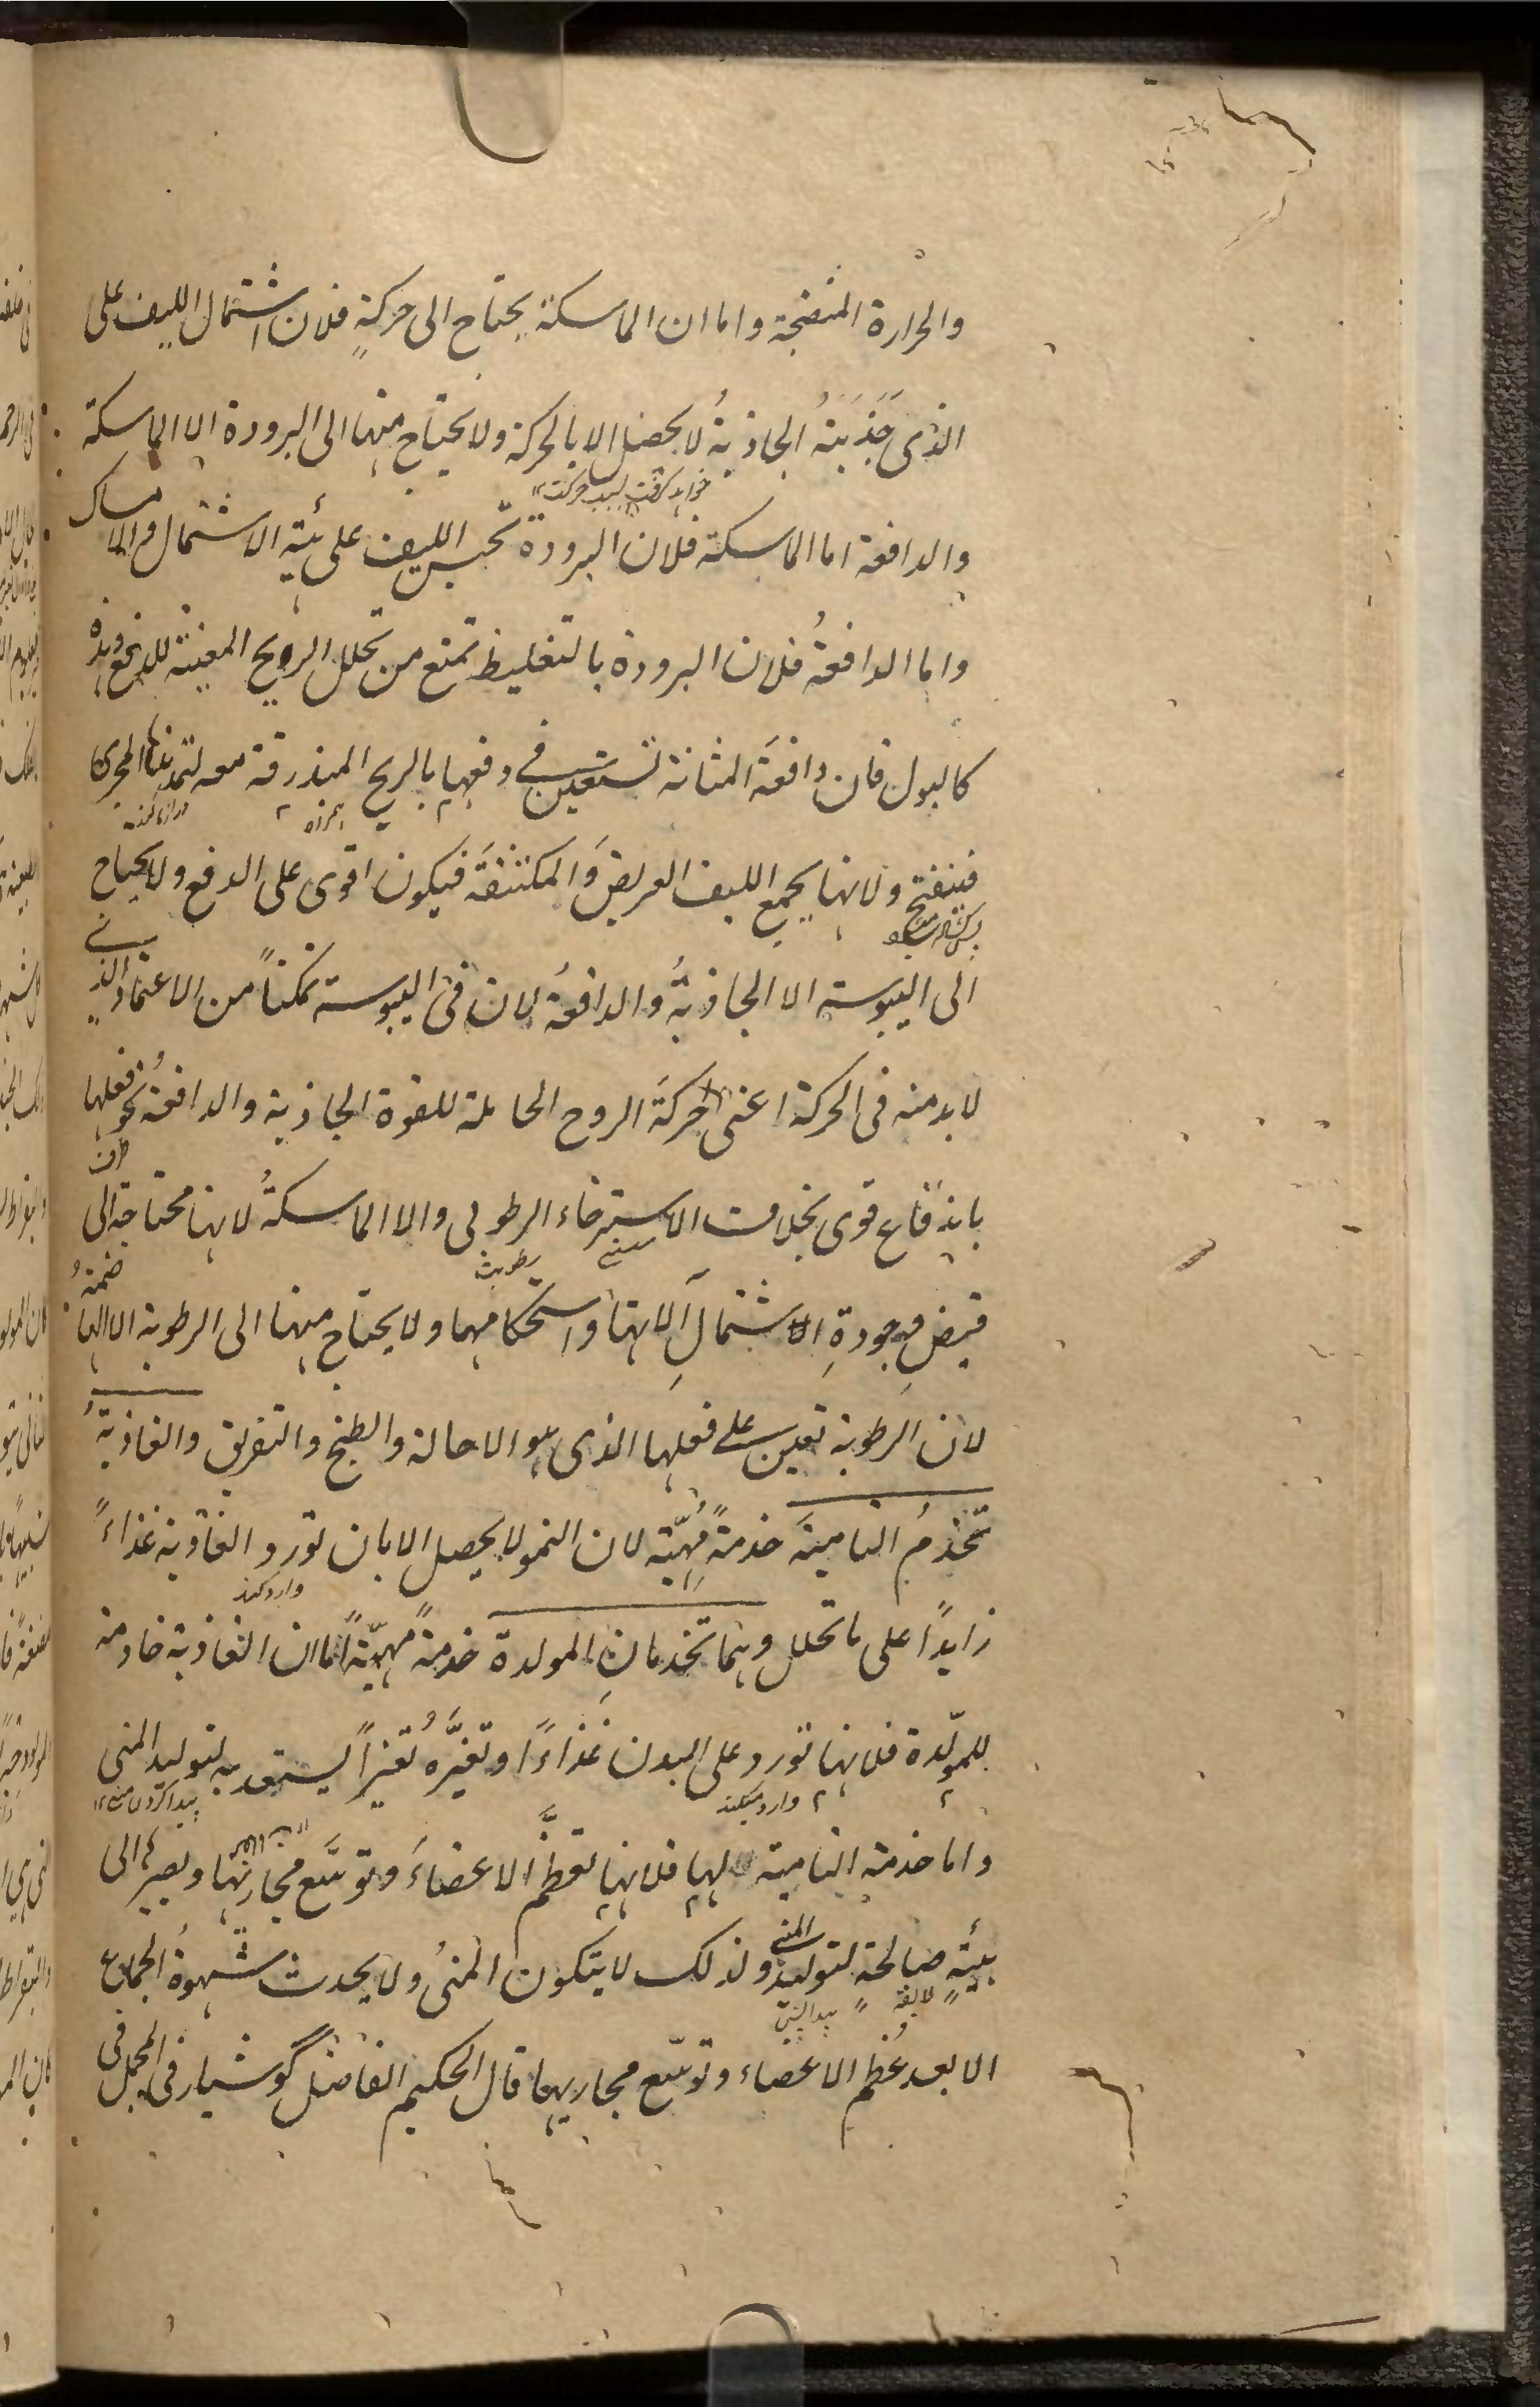 والحرارة المنضجة واما ان الماسكة يحتاج الى حركةٍ فلان اشتمال الليف على
الذى جَذَبَتهُ الجاذبةُ لا يحصل الا بالحركة ولا يحتاج منها الى البرودة الا الماسكة
والدافعة اما الماسكة فلان البرودة تحبس الليف على هيئة الاشتمال والامساك
واما الدافعةُ فلان البرودة بالتغليظ تمنع من تحلل الريح المعينة للدفع وهذه
كالبول فان دافعَة المثانة تستعين فى دفعها بالريح المنذرقة معه لتمديدها المجرى
همراه
فينفتح ولانها يجمع الليف العريضَ والمكثفَة فيكون اقوى على الدفع ولا يحتاج
الى اليبوسة الا الجاذبةُ والدافعةُ لان فى اليبوسة تمكناً من الاعتماد الذى
لا بد منه فى الحركة اعنى حركَة الروح الحاملة للقوة الجاذبة والدافعة نحو فعلها
باندفاع قوى بخلاف الاسترخاء الرطوبى والا الماسكةُ لانها محتاجة الى
قبضٍ وجودةِ الاشتمالِ آلاتها واستحكامها ولا يحتاج منها الى الرطوبة الا الهاضمةُ
لان الرطوبة تعين على فعلها الذى هو الاحالة والطبخ والتفريق والغاذيةُ
تخدُمُ الناميةَ خدمةً مُهيّئة لان النمو لا يحصل الا بان تورد الغاذية غذاءً
وارد كند
زايدًا على ما تحلل وهما تخدمانِ المولدة خدمةً مهيّئةً اما ان الغاذية خادمة
للمولّدة فلانها تورد على البدن غذاءًا وتغيَّرُه تغيراً يستعد به لتوليد المنى
وارد ميكند
واما خدمة النامية لها فلانها تعظِّم الاعضاءَ وتوسَّع مجاريها ويصيرها الى
هيئةٍ صالحة لتوليد المنى ولذلك لا يتكون المنىُ ولا يحدث شهوةُ الجماع
الا بعد عُظم الاعضاء وتوسّع مجاريها قال الحكيم الفاضل گوشيار فى المجمل فى